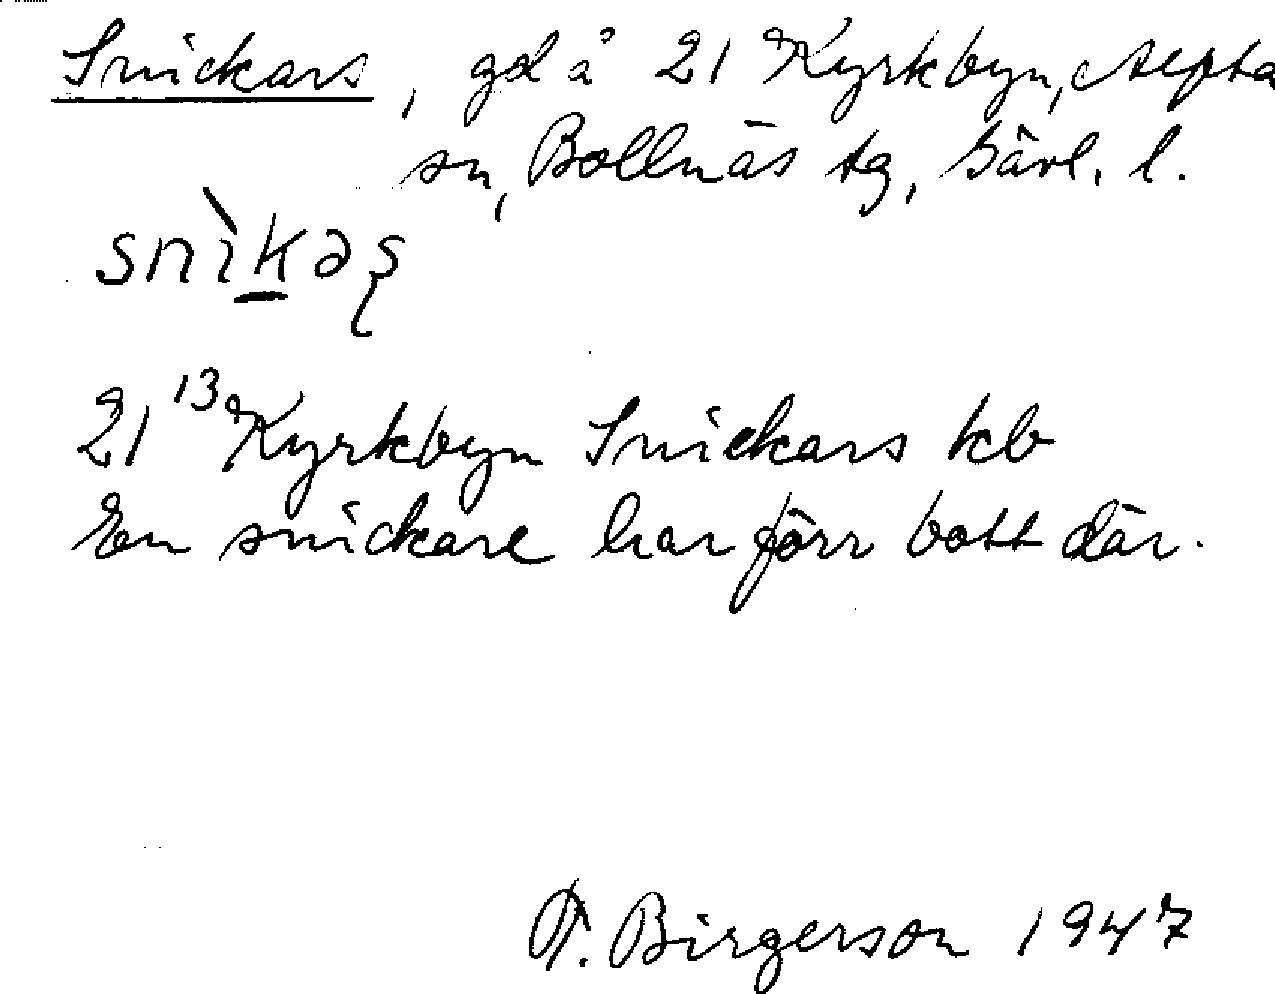 Snickars, gd å 21 Kyrkbyn, Alfta
sn, Bollnäs tg, Gävl. l.
snìkəʂ
21 13 Kyrkbyn Snickars kb
En snickare har förr bott där.
Birgerson 1947